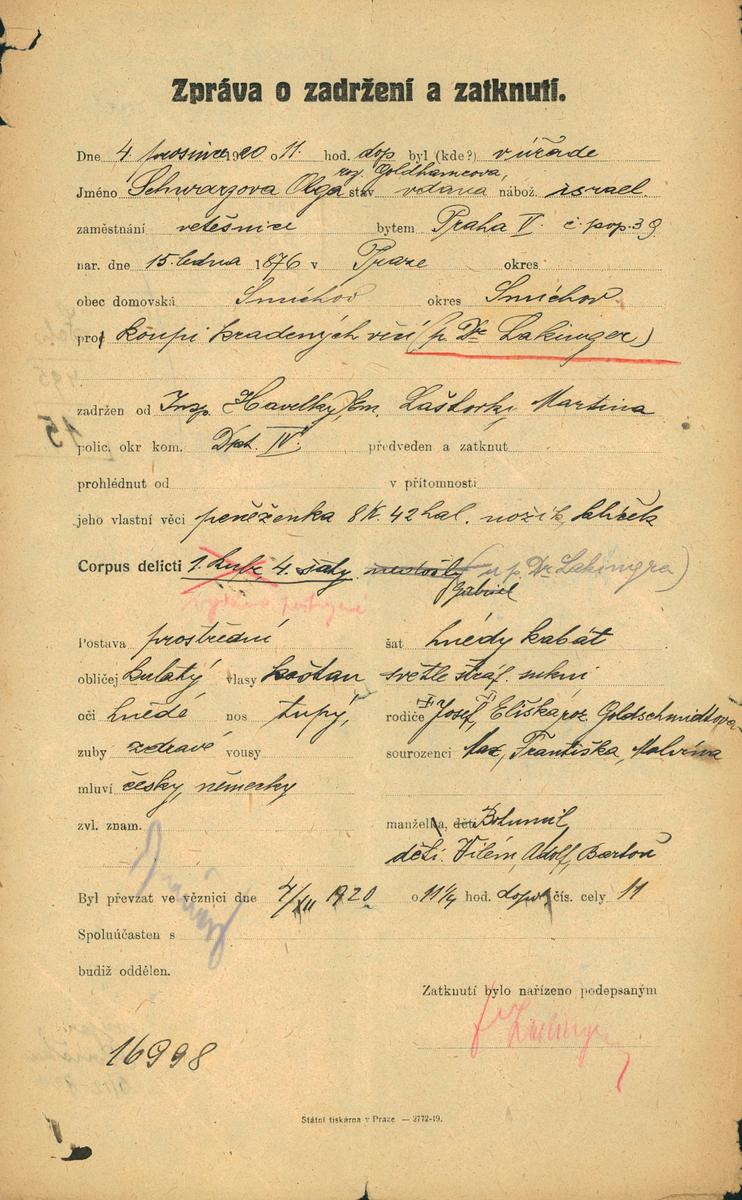 Zpráva o zadržení a zatknutí.
Dne 4. prosince 1920 o 11. hod. dop byl (kde?) v úřade
roz. Goldhamrova,
Jméno Schwarzova Olga stav vdana nábož. israel.
zaměstnání vetešnice bytem Praha V. č. pop. 39
nar. dne 15. ledna 1876 v Praze okres
obec domovská Smíchov okres Smíchov
proč koupi kradených věcí (p. Dr. Lakinger)
zadržen od Insp. Havelky, Em. Laštorky, Martina
polic. okr kom. Dpt. IV. předveden a zatknut
prohlédnut od v přítomnosti
jeho vlastní věci peněženka 8 K. 42 hal. nožík, klíček
Corpus delicti 4. šaty (u p. Dr. Lakingra)
Gabriel
Postava prostřední šat hnědy kabát
obličej kulatý vlasy kaštan světle straf. sukni
oči hnědé nos tupý, rodiče Josef, Eliška roz. Goldschmidtova
zuby zdravé vousy sourozenci Max, Františka, Malvína
mluví česky, německy
zvl. znam. manželka, děti Bohumil,
děti: Vilém, Adolf, Barton
Byl převzat ve věznici dne 4/XII 1920 o 11 1/4 hod. dop. čís. cely 11
Spoluúčasten s
budiž oddělen.
Zatknutí bylo nařízeno podepsaným
16998
Státní tiskárna v Praze — 3772-19.